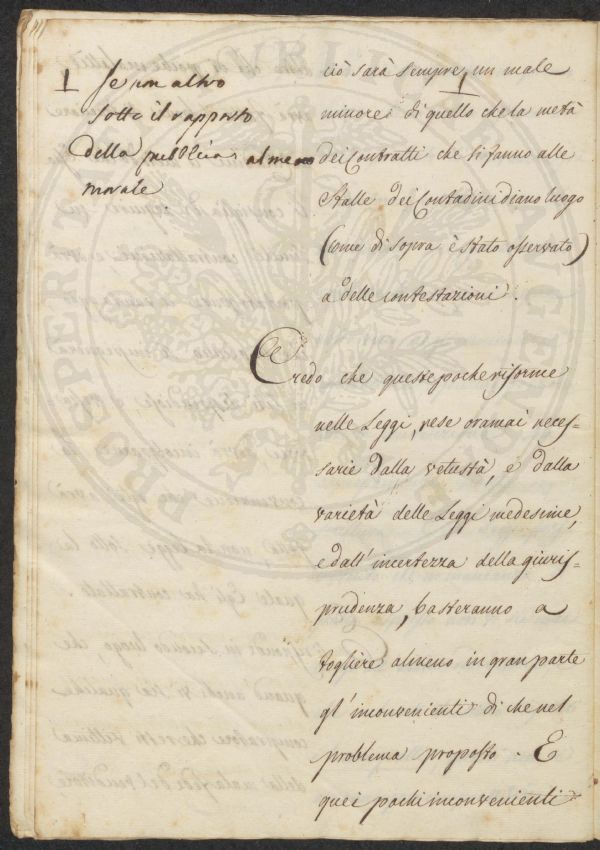 se non altro
sotto il rapporto
della pubblica almeno
morale
ciò sarà sempre un male
minore di quello che la metà
dei Contratti che si fanno alle
Stalle dei Contadini diano luogo
(come di sopra è stato osservato)
a delle contestazioni.
Credo che queste poche riforme
nelle Leggi, rese oramai neces=
sarie dalla vetustà, e dalla
varietà delle Leggi medesime,
e dall'incertezza della giuris=
prudenza, basteranno a
togliere almeno in gran parte
gl'inconvenienti di che nel
problema proposto. E
quei pochi inconvenienti